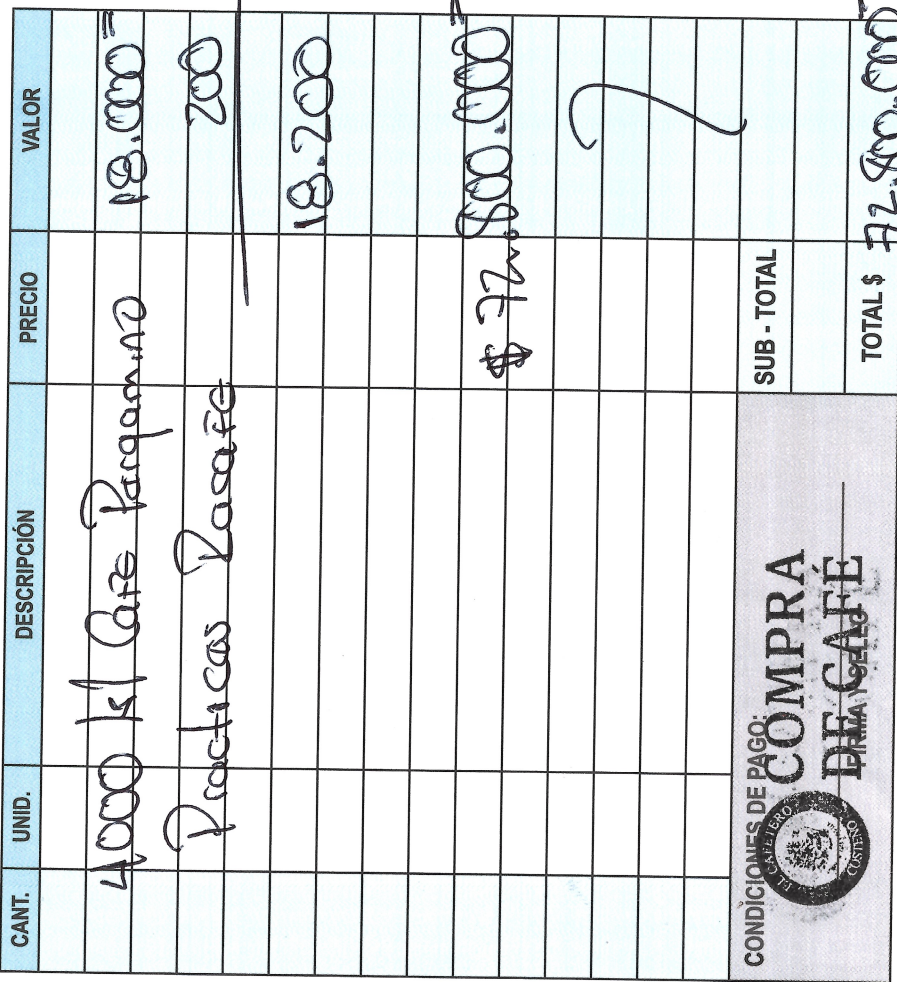 CANT. UNID. DESCRIPCIÓN PRECIO VALOR
4000 kl Cafe Pargamino 18.000=
Practicas Racafe 200
18.200
$ 72.800.000=
CONDICIONES DE PAGO: SUB - TOTAL
COMPRA
DE CAFÉ
FIRMA Y SELLO
EL CAFETERO COSTEÑO
TOTAL $ 72.800.000=